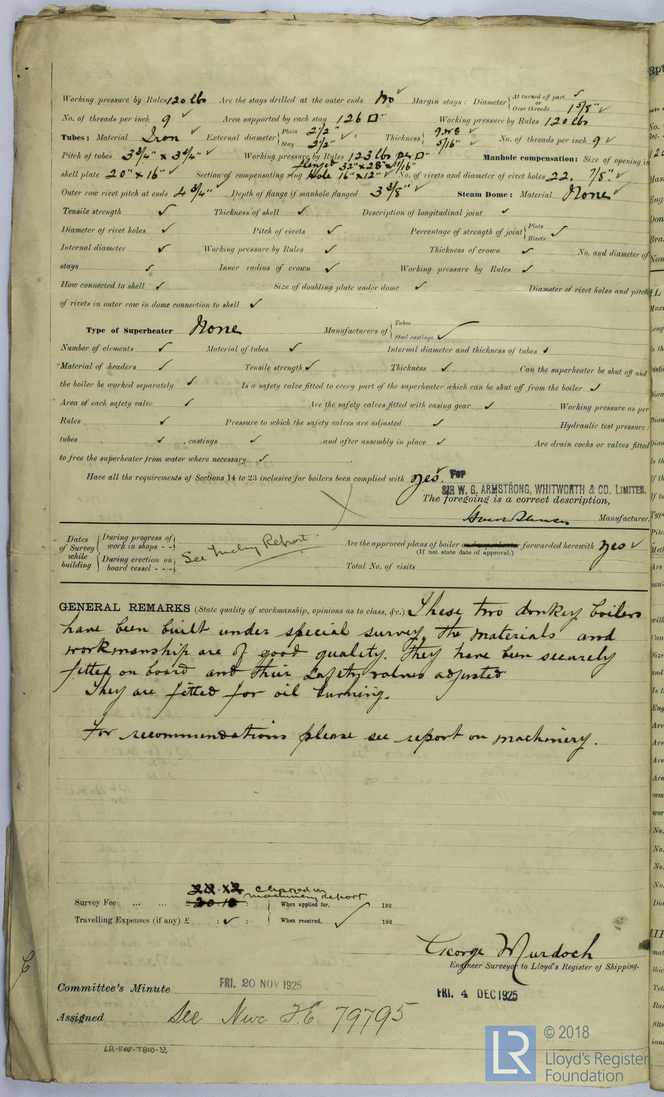 Working pressure by Rules 120 lbs Are the stays drilled at the outer ends No ✓ Margin stays: Diameter { At turned off part, ✓ or Over threads 1 5/8" ✓
No. of threads per inch 9 ✓ Area supported by each stay 126 □" ✓ Working pressure by Rules 120 lbs
Tubes: Material Iron ✓ External diameter { Plain 2 1/2" ✓ Stay 2 1/2" ✓ Thickness { 9 W.G ✓ 5/16" ✓ No. of threads per inch 9 ✓
Pitch of tubes 3 3/4" x 3 3/4" ✓ Working pressure by Rules 123 lbs per □" Manhole compensation: Size of opening in
shell plate 20" x 16" ✓ Section of compensating ring Flanged 32" x 28" x 11/16" Hole 16" x 12" ✓ No. of rivets and diameter of rivet holes 22, 7/8" ✓
Outer row rivet pitch at ends 4 3/4" ✓ Depth of flange if manhole flanged 3 3/8" ✓ Steam Dome: Material None ✓
Tensile strength ✓ Thickness of shell ✓ Description of longitudinal joint ✓
Diameter of rivet holes ✓ Pitch of rivets ✓ Percentage of strength of joint { Plate Rivets ✓
Internal diameter ✓ Working pressure by Rules ✓ Thickness of crown ✓ No. and diameter of
stays ✓ Inner radius of crown ✓ Working pressure by Rules ✓
How connected to shell ✓ Size of doubling plate under dome ✓ Diameter of rivet holes and pitch
of rivets in outer row in dome connection to shell ✓
Type of Superheater None Manufacturers of { Tubes Steel castings ✓
Number of elements ✓ Material of tubes ✓ Internal diameter and thickness of tubes ✓
Material of headers ✓ Tensile strength ✓ Thickness ✓ Can the superheater be shut off and
the boiler be worked separately ✓ Is a safety valve fitted to every part of the superheater which can be shut off from the boiler ✓
Area of each safety valve ✓ Are the safety valves fitted with easing gear ✓ Working pressure as per
Rules ✓ Pressure to which the safety valves are adjusted ✓ Hydraulic test pressure:
tubes ✓, castings ✓ and after assembly in place ✓ Are drain cocks or valves fitted
to free the superheater from water where necessary ✓
Have all the requirements of Sections 14 to 23 inclusive for boilers been complied with yes. FOR
SIR W. G. ARMSTRONG, WHITWORTH & CO. LIMITED.
The foregoing is a correct description,
Manufacturer.
Dates of Survey while building { During progress of work in shops - - During erection on board vessel - - - See Mchy Report
Are the approved plans of boiler and superheater forwarded herewith yes ✓
(If not state date of approval.)
Total No. of visits
GENERAL REMARKS (State quality of workmanship, opinions as to class, &c.) These two donkey boilers
have been built under special survey, the materials and
workmanship are of good quality. They have been securely
fitted on board and their safety valves adjusted
They are fitted for oil burning.
For recommendations please see report on machinery.
Charged on machinery report
Survey Fee ... ... £ : : When applied for, 192
Travelling Expenses (if any) £ : ✓ : When received, ✓ 192
George Murdoch
Engineer Surveyor to Lloyd's Register of Shipping.
Committee's Minute FRI. 20 NOV 1925 FRI. 4 DEC 1925
Assigned See Nwc F.E. 79795
LR-FAF-T810-33
LR © 2018
Lloyd's Register
Foundation